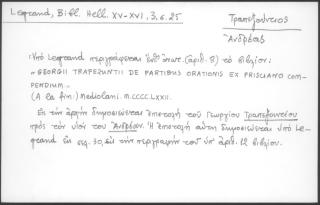 Legrand, Bibl. Hell. XV-XVI, 3, σ. 25
Τραπεζούντιος
Ἀνδρέας
Ὑπὸ Legrand περιγράφεται (ἀριθ. 8) τὸ βιβλίον:
"GEORGII TRAPEZUNTII DE PARTIBUS ORATIONIS EX PRISCIANO COM-
PENDIUM".
(A la fin:) Mediolani. M.CCCC.LXXII.
Εἰς τὴν ἀρχὴν δημοσιεύεται ἐπιστολὴ τοῦ Γεωργίου Τραπεζουντίου
πρὸς τὸν υἱόν του Ἀνδρέαν. Ἡ ἐπιστολὴ αὕτη δημοσιεύεται ὑπὸ Le-
grand ἐν σελ. 30, εἰς τὴν περιγραφὴν τοῦ ὑπ' ἀριθ. 12 βιβλίου.